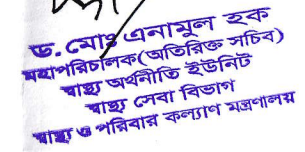 ড. মোঃ এনামুল হক
মহাপরিচালক(অতিরিক্ত সচিব)
স্বাস্থ্য অর্থনীতি ইউনিট
স্বাস্থ্য সেবা বিভাগ
স্বাস্থ্য ও পরিবার কল্যাণ মন্ত্রণালয়